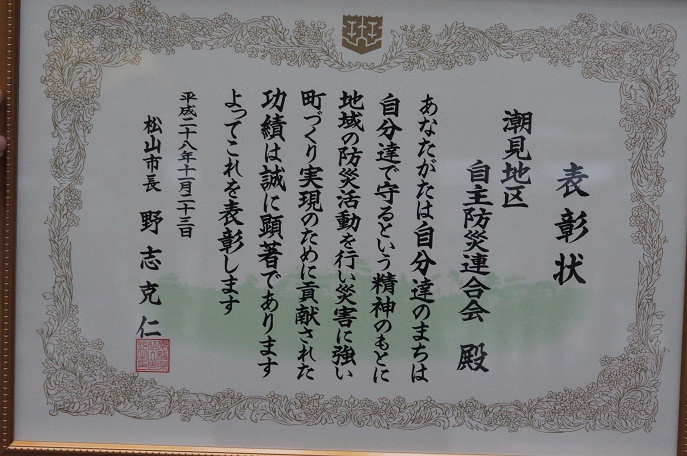 表彰状
潮見地区
自主防災連合会 殿
あなたがたは自分達のまちは
自分達で守るという精神のもとに
地域の防災活動を行い災害に強い
町づくり実現のために貢献された
功績は誠に顕著であります
よってこれを表彰します
平成二十八年十一月二十三日
松山市長 野志克仁